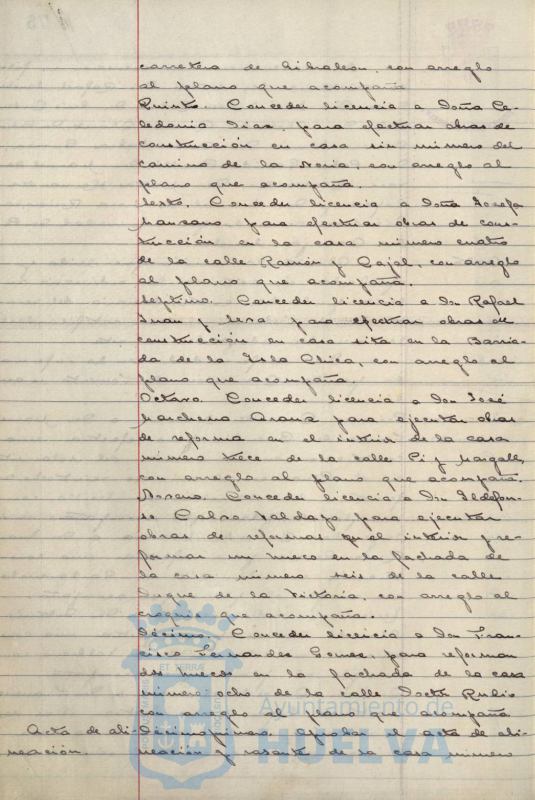 carretera de Gibraleon, con arreglo
al plano que acompaña
Quinto. Conceder licencia a Doña Ce-
ledonia Diaz, para efectuar obras de
construcción en casa sin número del
camino de la Noria, con arreglo al
plano que acompaña.
Sexto. Conceder licencia a Doña Josefa
Manzano para efectuar obras de cons-
trucción en la casa número cuatro
de la calle Ramón y Cajal, con arreglo
al plano que acompaña.
Septimo. Conceder licencia a Don Rafael
Juan y Sera para efectuar obras de
construcción en casa sita en la Barria-
da de la Isla Chica, con arreglo al
plano que acompaña.
Octavo. Conceder licencia a Don José
Marchena Aranz para ejecutar obras
de reforma en el interior de la casa
número trece de la calle Pi y Margall,
con arreglo al plano que acompaña.
Noveno. Conceder licencia a Don Ildefon-
so Calvo Valdayo para ejecutar
obras de reformas en el interior y re-
formar un hueco en la fachada de
la casa número seis de la calle
Duque de la Victoria, con arreglo al
croquis que acompaña.
Décimo. Conceder licencia a Don Fran-
cisco Fernandez Gomez, para reformar
dos huecos en la fachada de la casa
número ocho de la calle Doctor Rubio
con arreglo al plano que acompaña
Acta de ali- Decimoprimero. Aprobar el acta de ali-
neación. neación y rasante de la casa número
Ayuntamiento de
HUELVA